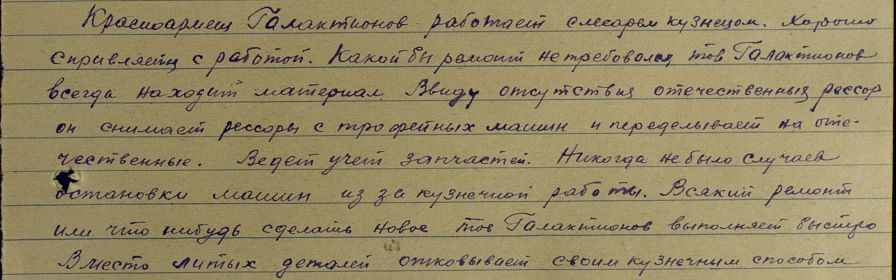 Красноармеец Галактионов работает слесарем кузнецом. Хорошо
справляется с работой. Какой бы ремонт не требовался, тов Галактионов
всегда находит материал. Ввиду отсутствия отечественных рессор
он снимает рессоры с трофейных машин и переделывает на оте-
чественные. Ведет учет запчастей. Никогда не было случаев
остановки машин из за кузнечной работы. Всякий ремонт
или что нибудь сделать новое тов Галактионов выполняет быстро
Вместо литых деталей отковывает своим кузнечным способом